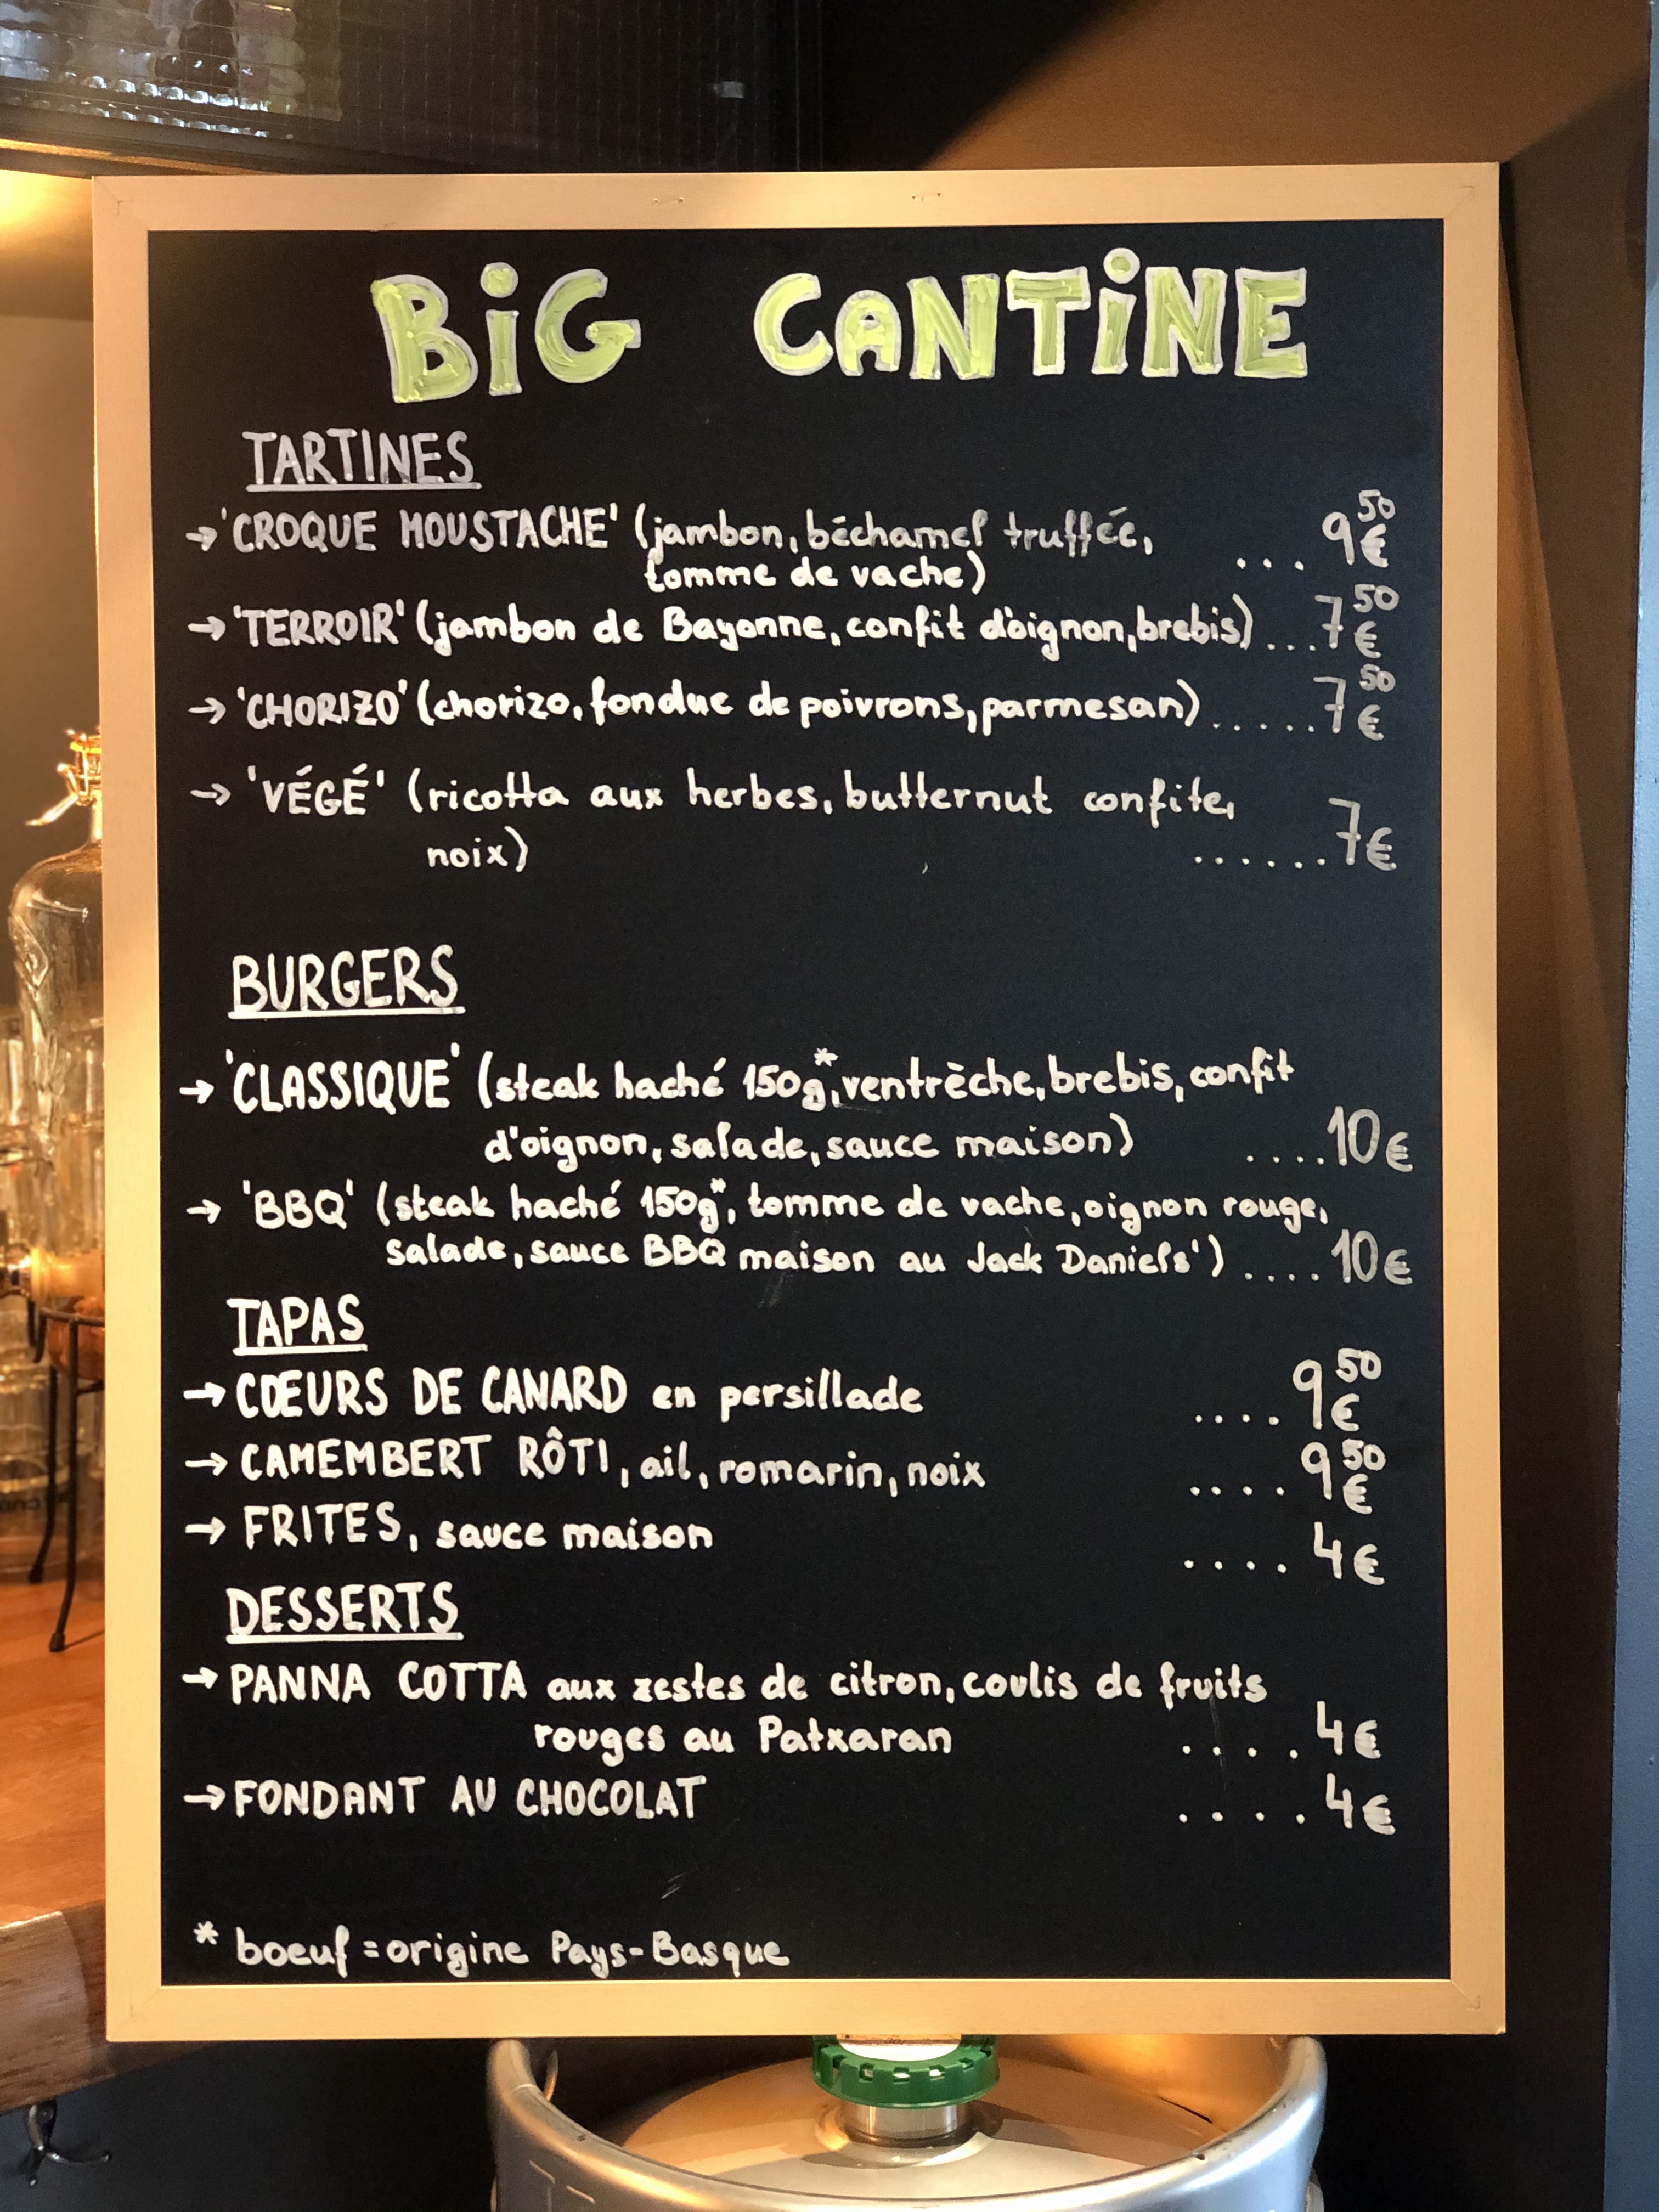 BiG CANTiNE
TARTINES
→ 'CROQUE MOUSTACHE' (jambon, béchamel truffée,
tomme de vache) ... 9€50
→ 'TERROIR' (jambon de Bayonne, confit d'oignon, brebis) ... 7€50
→ 'CHORIZO' (chorizo, fondue de poivrons, parmesan) ..... 7€50
→ 'VÉGÉ' (ricotta aux herbes, butternut confite,
noix) ...... 7€
BURGERS
→ 'CLASSIQUE' (steak haché 150g*, ventrèche, brebis, confit
d'oignon, salade, sauce maison) .... 10€
→ 'BBQ' (steak haché 150g*, tomme de vache, oignon rouge,
salade, sauce BBQ maison au Jack Daniels') .... 10€
TAPAS
→ CŒURS DE CANARD en persillade .... 9€50
→ CAMEMBERT RÔTI, ail, romarin, noix .... 9€50
→ FRITES, sauce maison .... 4€
DESSERTS
→ PANNA COTTA aux zestes de citron, coulis de fruits
rouges au Patxaran .... 4€
→ FONDANT AU CHOCOLAT .... 4€
* boeuf = origine Pays-Basque